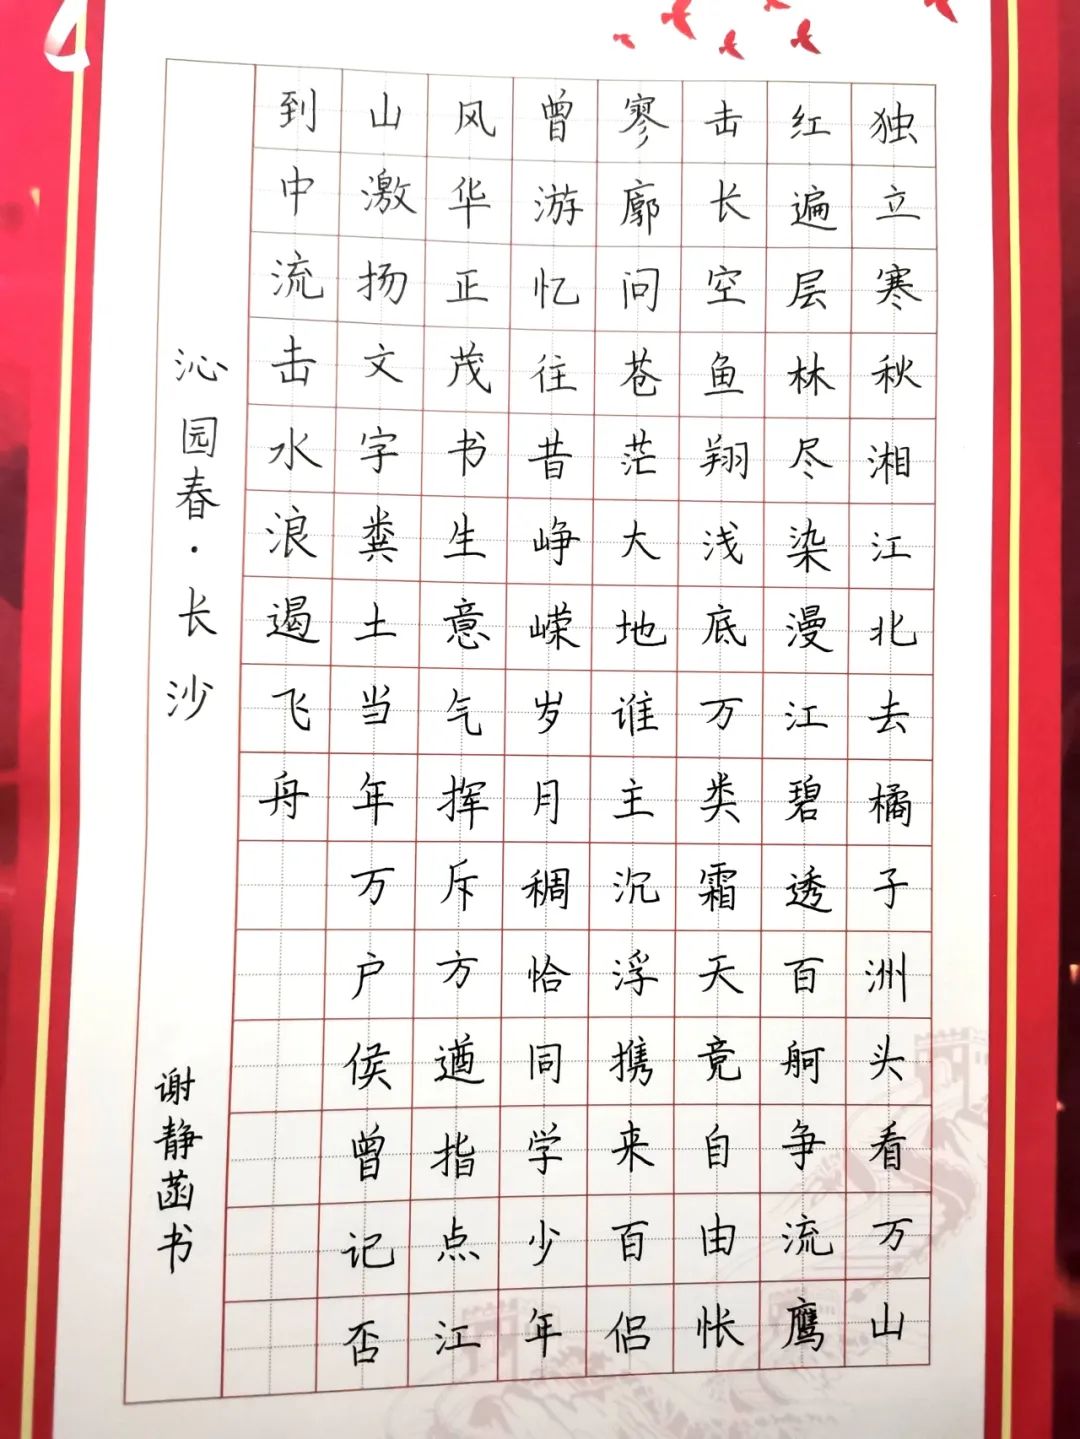 独立寒秋湘江北去橘子洲头看万山
红遍层林尽染漫江碧透百舸争流鹰
击长空鱼翔浅底万类霜天竞自由怅
寥廓问苍茫大地谁主沉浮携来百侣
曾游忆往昔峥嵘岁月稠恰同学少年
风华正茂书生意气挥斥方遒指点江
山激扬文字粪土当年万户侯曾记否
到中流击水浪遏飞舟
沁园春·长沙
谢静菡书